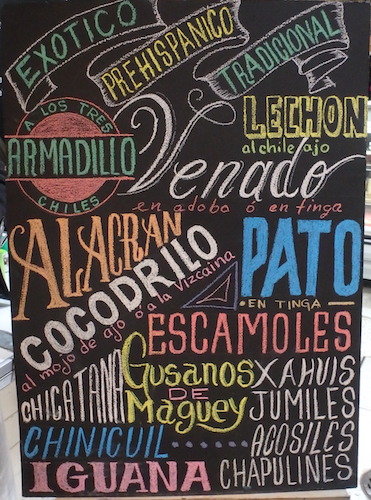 EXOTICO
PREHISPANICO
TRADICIONAL
A LOS TRES
ARMADILLO
CHILES
LECHON
al chile ajo
Venado
en adobo ó en tinga
ALACRAN
COCODRILO
al mojo de ajo ó a la Vizcaina
PATO
EN TINGA
ESCAMOLES
CHICATANA
Gusanos
DE
Maguey
XAHUIS
JUMILES
CHINICUIL
ACOSILES
IGUANA
CHAPULINES